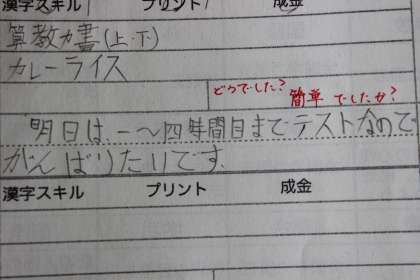 漢字スキル プリント 成金
算教カ書(上・下)
カレーライス
どうでした? 簡単でしたか?
明日は、一〜四時間目までテストなので
がんばりたいです。
漢字スキル プリント 成金